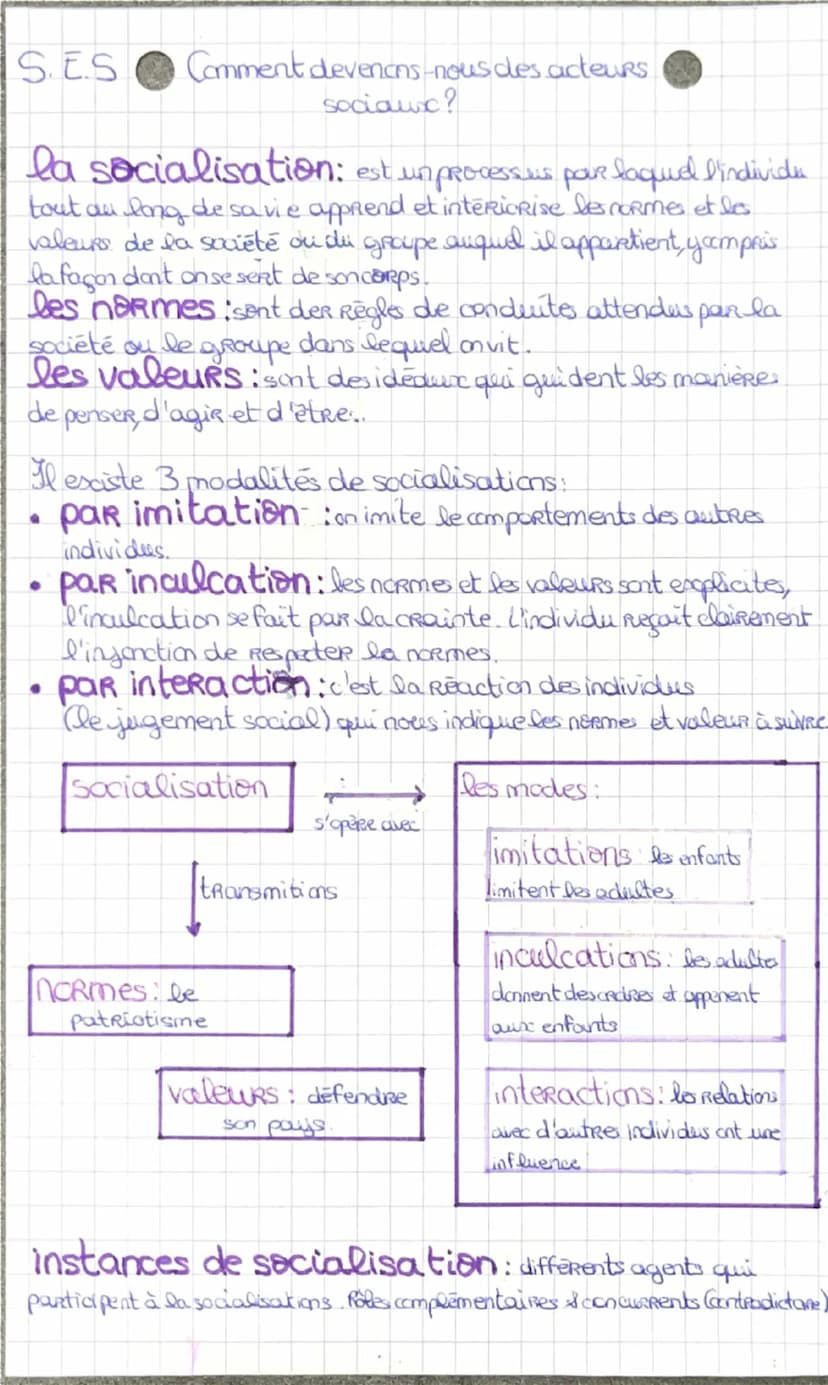 S.E.S Comment devenons-nous des acteurs
sociaux?
la socialisation: est un processus par laquel l'individu
tout au long de sa vie apprend et intériorise les normes et les
valeurs de la société ou du groupe auquel il appartient, y compris
la façon dont on se sert de son corps.
les normes : sont der règles de conduites attendues par la
société ou le groupe dans lequel on vit.
les valeurs : sont des idéaux qui guident les manières
de penser, d'agir et d'être..
Il existe 3 modalités de socialisations:
• par imitation : on imite le comportements des autres
individus.
• par inculcation: les normes et les valeurs sont explicites,
l'inculcation se fait par la crainte. L'individu reçoit clairement
l'injonction de respecter la normes.
• par interaction : c'est la réaction des individus
(le jugement social) qui nous indique les norme et valeur à suivre
socialisation
s'opère avec
les modes :
imitations : les enfants
imitent les adultes
transmitions
inculcations : les adultes
donnent des cadres et apprenent
aux enfants
normes : le
patriotisme
valeurs : défendre
son pays.
interactions : les relations
avec d'autres individus ont une
influence
instances de socialisation : différents agents qui
participent à la socialisations. Rôles complémentaires & concurrents (contradictoire)